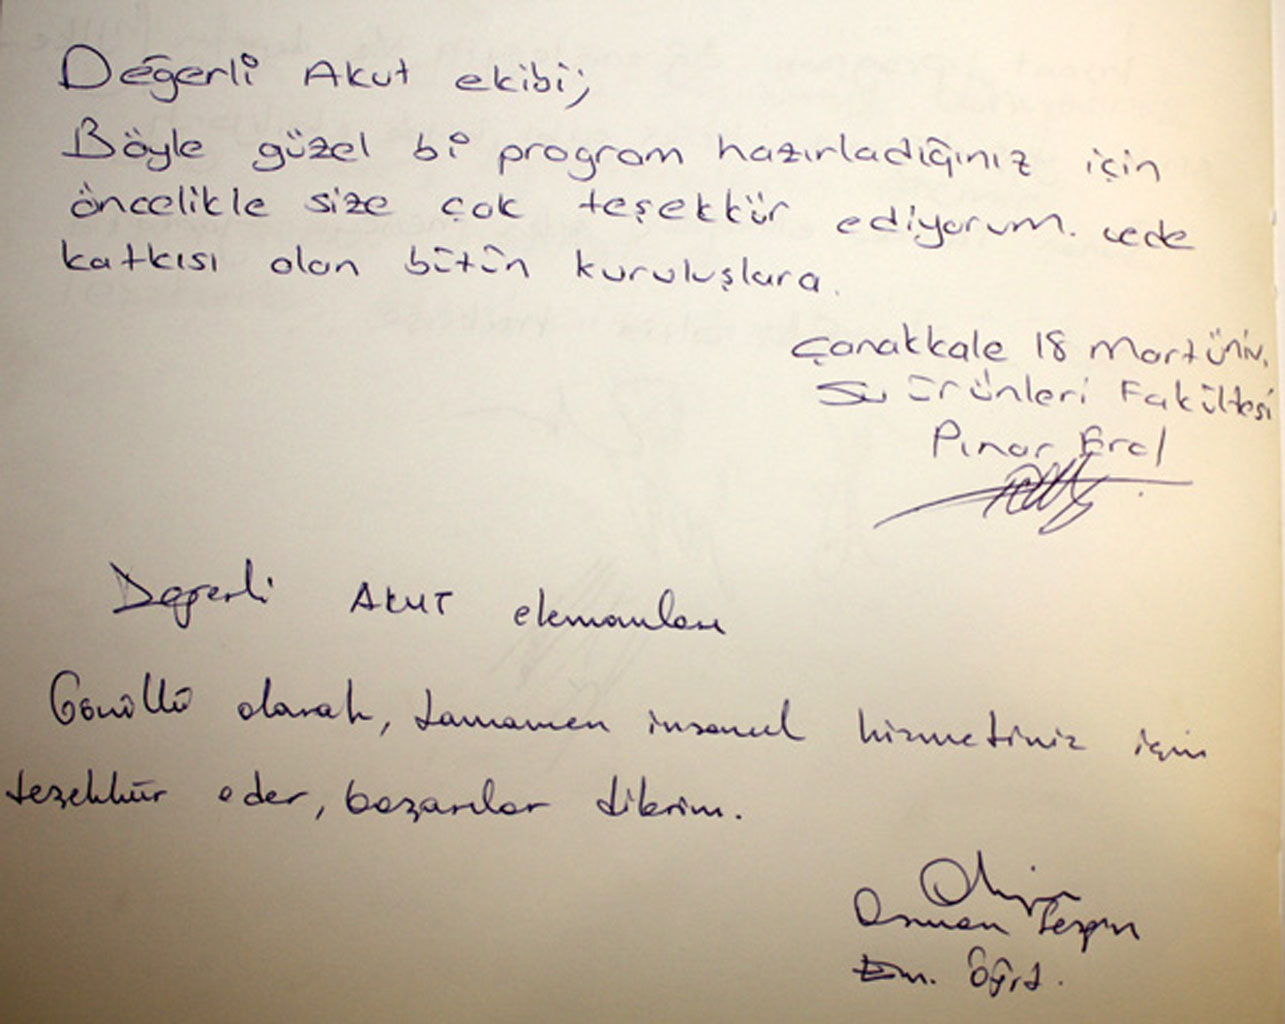 Değerli Akut ekibi;
Böyle güzel bi program hazırladığınız için
öncelikle size çok teşekkür ediyorum. vede
katkısı olan bütün kuruluşlara.
Çanakkale 18 Mart Üniv.
Su Ürünleri Fakültesi
Pınar Eral
Değerli AKUT elemanları
Gönüllü olarak, tamamen insancıl hizmetiniz için
teşekkür eder, başarılar dilerim.
Osman
Em. Öğrt.